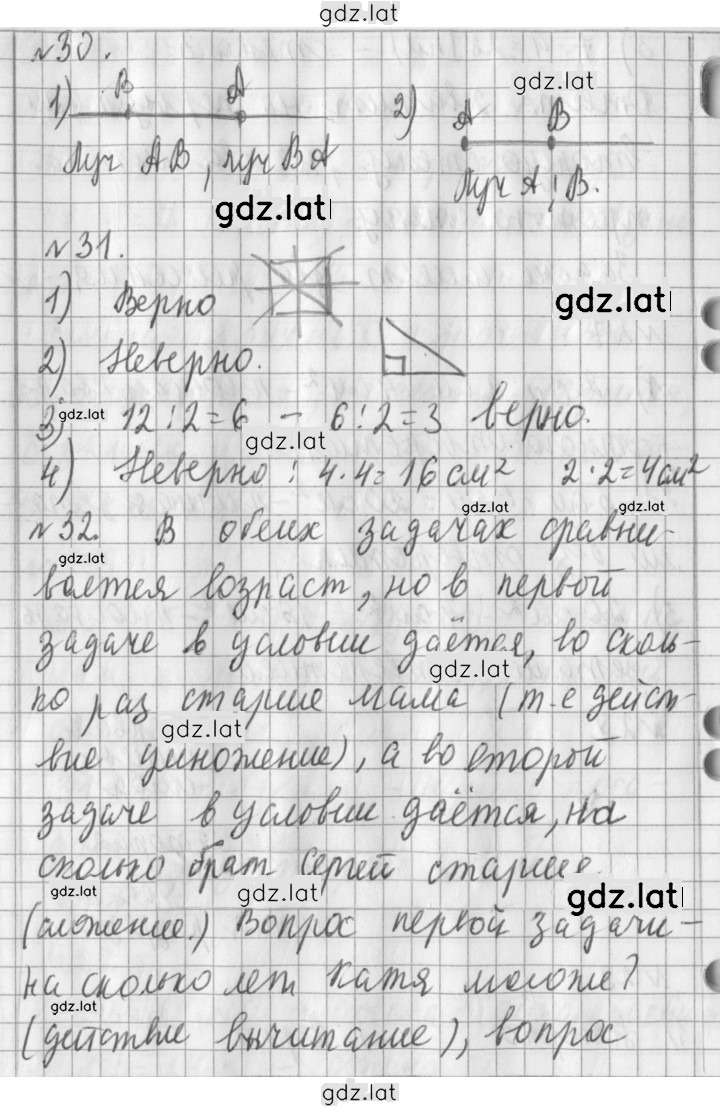 gdz.lat
№30.
gdz.lat
1) В А 2) А В
Луч АВ, луч ВА Луч А; В.
gdz.lat
№31.
1) Верно
gdz.lat
2) Неверно.
3) gdz.lat 12:2=6 – 6:2=3 верно.
gdz.lat
4) Неверно: 4·4=16см² 2·2=4см²
gdz.lat gdz.lat
№32. В обеих задачах сравни-
gdz.lat
вается возраст, но в первой
задаче в условии даётся, во сколь-
gdz.lat
ко раз старше мама (т-е дейст-
gdz.lat
вие умножение), а во второй
задаче в условии даётся, на
сколько брат Сергей старше.
gdz.lat gdz.lat gdz.lat
(сложение.) Вопрос первой задачи –
на сколько лет Катя моложе?
gdz.lat
(действие вычитание), вопрос
gdz.lat